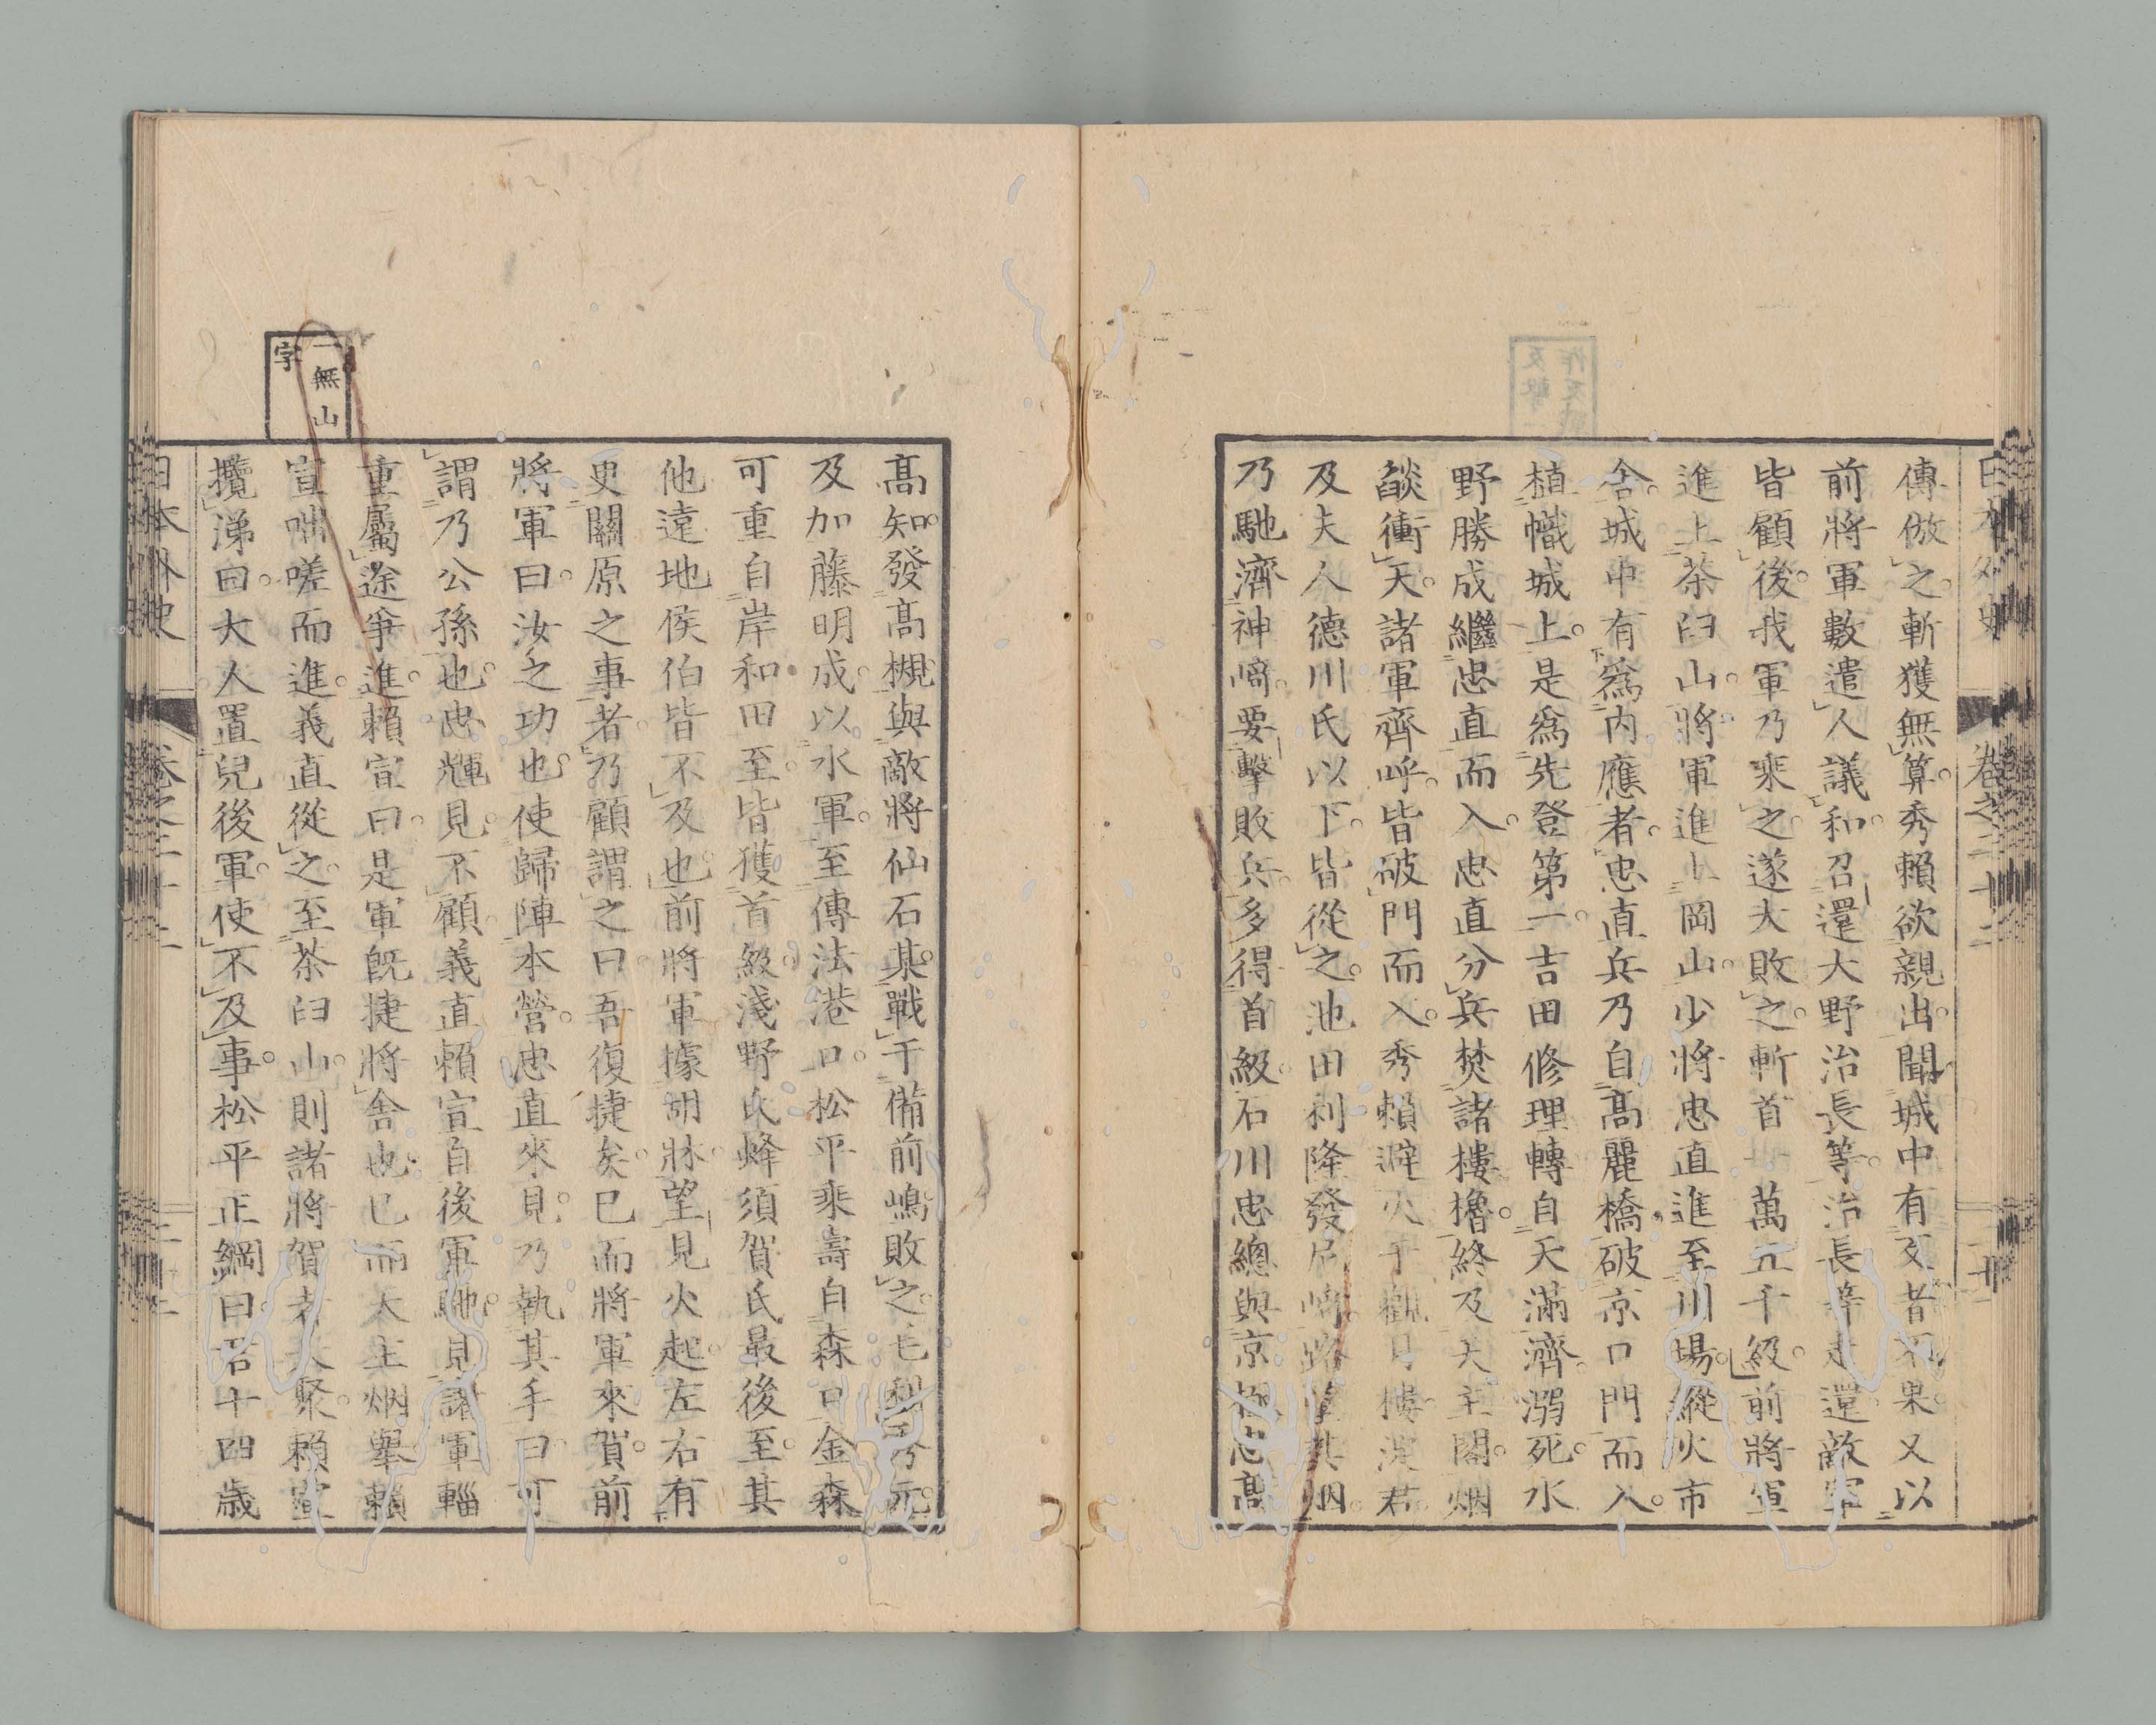 日本外史 卷之二十二
傳倣之。斬獲無算。秀賴欲親出。聞城中有反者。不果。又以
前將軍數遣人議和。召還大野治長等。治長等走還。敵軍
皆顧後。我軍乃乘之。遂大敗之。斬首萬五千級。前將軍
進上茶臼山。將軍進上岡山。少將忠直進至川場。縱火市
舍。城中有爲內應者。忠直兵乃自高麗橋。破京口門而入。
植幟城上。是爲先登第一。吉田修理轉自天滿濟。溺死。水
野勝成繼忠直而入。忠直分兵焚諸樓櫓。終及天主閣。烟
燄衝天。諸軍齊呼。皆破門而入。秀賴避火于觀月樓。淀君
及夫人德川氏以下。皆從之。池田利隆發尼崎。路望其烟。
乃馳濟神崎。要擊敗兵。多得首級。石川忠總與京極忠高
高知。發高槻。與敵將仙石某。戰于備前嶋。敗之。毛利秀元。
及加藤明成。以水軍。至傳法港口。松平乘壽自森口。金森
可重自岸和田至。皆獲首級。淺野氏。蜂須賀氏最後至。其
他遠地侯伯皆不及也。前將軍據胡牀。望見火起。左右有
更關原之事者。乃顧謂之曰。吾復捷矣。已而將軍來賀。前
將軍曰。汝之功也。使歸陣本營。忠直來見。乃執其手曰。可
謂乃公孫也。忠輝見。不顧。義直賴宣自後軍馳。見諸軍輜
重屬途爭進。賴宣曰。是軍既捷。將舍也。已而天主烟舉。賴
宣咄嗟而進。義直從之。至茶臼山。則諸將賀者大聚。賴宣
攬涕曰。大人置兒後軍。使不及事。松平正綱曰。君十四歲
一無山
字
日本外史 卷之二十二